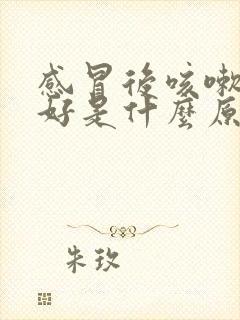 感冒後咳嗽
好是什麼原
朱玫